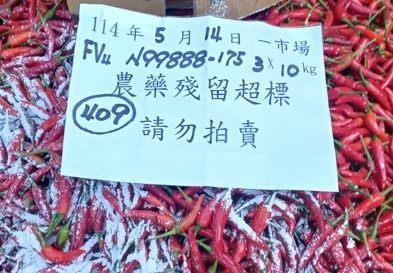 114年5月14日 一市場
FV4 N99888-175 3x10kg
農藥殘留超標
409
請勿拍賣